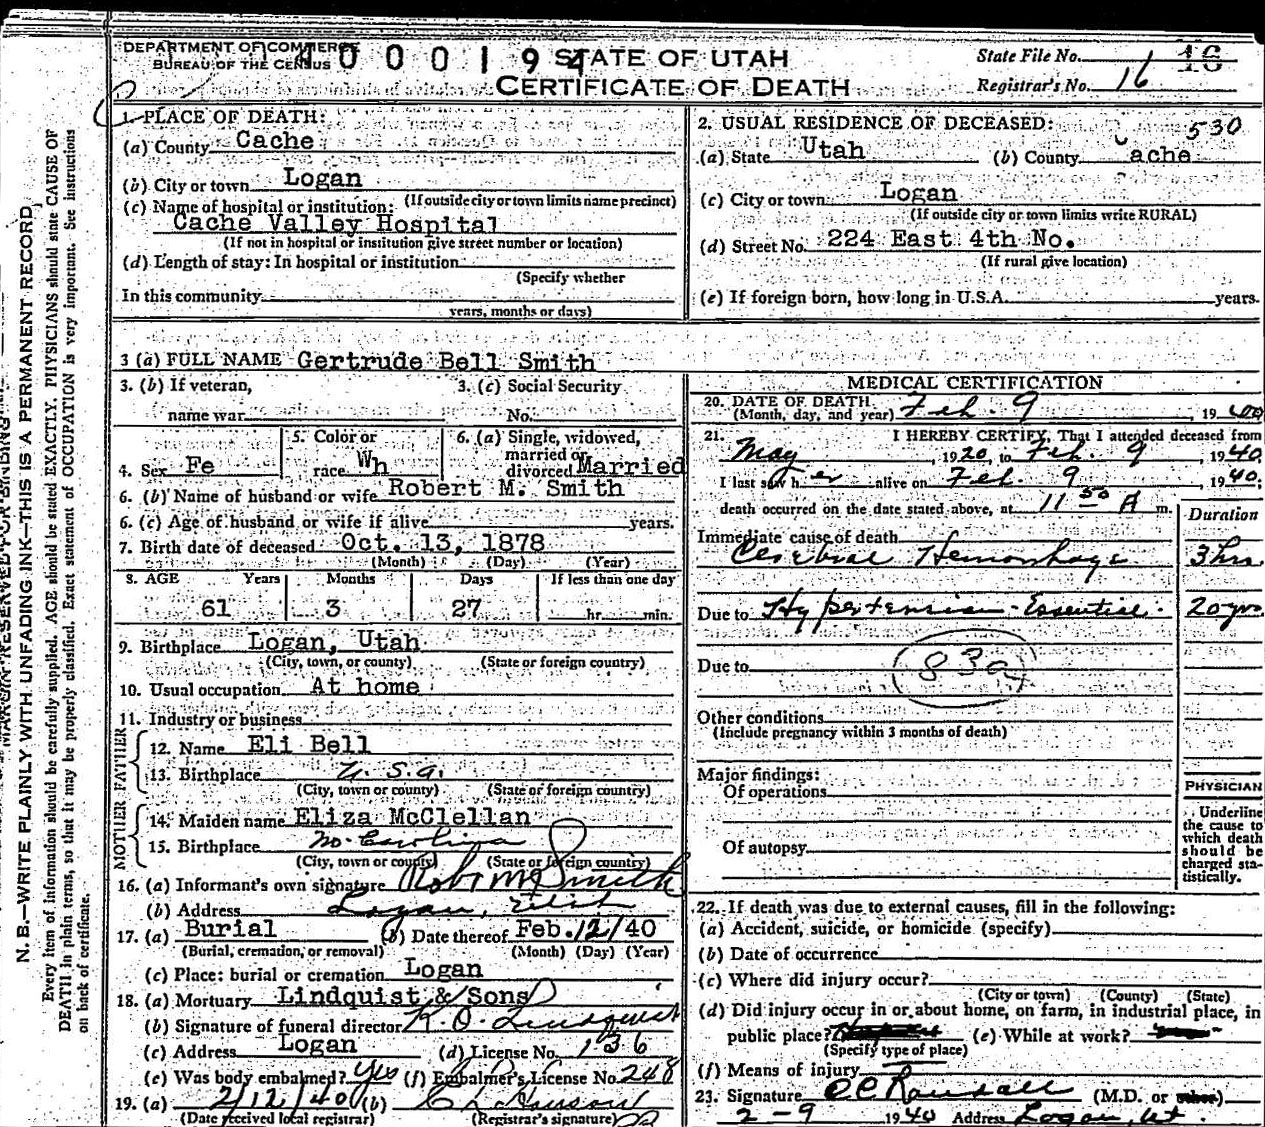 DEPARTMENT OF COMMERCE
BUREAU OF THE CENSUS
4000194
STATE OF UTAH
CERTIFICATE OF DEATH
State File No. 16
Registrar's No. 16
1. PLACE OF DEATH:
(a) County Cache
(b) City or town Logan
(If outside city or town limits name precinct)
(c) Name of hospital or institution:
Cache Valley Hospital
(If not in hospital or institution give street number or location)
(d) Length of stay: In hospital or institution
(Specify whether
In this community
years, months or days)
2. USUAL RESIDENCE OF DECEASED: 530
(a) State Utah (b) County Cache
(c) City or town Logan
(If outside city or town limits write RURAL)
(d) Street No. 224 East 4th No.
(If rural give location)
(e) If foreign born, how long in U.S.A. years.
3 (a) FULL NAME Gertrude Bell Smith
3. (b) If veteran,
name war
3. (c) Social Security
No.
4. Sex Fe
5. Color or
race Wh
6. (a) Single, widowed,
married or
divorced Married
6. (b) Name of husband or wife Robert M. Smith
6. (c) Age of husband or wife if alive years.
7. Birth date of deceased Oct. 13, 1878
(Month) (Day) (Year)
8. AGE Years Months Days If less than one day
61 3 27 hr. min.
9. Birthplace Logan, Utah
(City, town, or county) (State or foreign country)
10. Usual occupation At home
11. Industry or business
FATHER
12. Name Eli Bell
13. Birthplace U.S.A.
(City, town or county) (State or foreign country)
MOTHER
14. Maiden name Eliza McClellan
15. Birthplace No. Carolina
(City, town or county) (State or foreign country)
16. (a) Informant's own signature Robt M Smith
(b) Address Logan, Utah
17. (a) Burial (b) Date thereof Feb. 12/40
(Burial, cremation, or removal) (Month) (Day) (Year)
(c) Place: burial or cremation Logan
18. (a) Mortuary Lindquist & Sons
(b) Signature of funeral director K. O. Lindquist
(c) Address Logan (d) License No. 136
(e) Was body embalmed? Yes (f) Embalmer's License No. 248
19. (a) 2/12/40 (b)
(Date received local registrar) (Registrar's signature)
MEDICAL CERTIFICATION
20. DATE OF DEATH
(Month, day, and year) Feb. 9, 1940
21. I HEREBY CERTIFY, That I attended deceased from
May, 1920, to Feb. 9 1940
I last saw her alive on Feb. 9, 1940;
death occurred on the date stated above, at 11 50 A m.
Duration
Immediate cause of death
Cerebral Hemorrhage 3 hrs
Due to Hypertension - Essential. 20 yrs
Due to 83a
Other conditions
(Include pregnancy within 3 months of death)
Major findings:
Of operations
Of autopsy
PHYSICIAN
Underline
the cause to
which death
should be
charged sta-
tistically.
22. If death was due to external causes, fill in the following:
(a) Accident, suicide, or homicide (specify)
(b) Date of occurrence
(c) Where did injury occur?
(City or town) (County) (State)
(d) Did injury occur in or about home, on farm, in industrial place, in
public place? (e) While at work?
(Specify type of place)
(f) Means of injury
23. Signature (M.D. or other)
2-9 1940 Address Logan, Ut.
MARGIN RESERVED FOR BINDING
N. B.—WRITE PLAINLY WITH UNFADING INK—THIS IS A PERMANENT RECORD
Every item of information should be carefully supplied. AGE should be stated EXACTLY. PHYSICIANS should state CAUSE OF
DEATH in plain terms, so that it may be properly classified. Exact statement of OCCUPATION is very important. See instructions
on back of certificate.